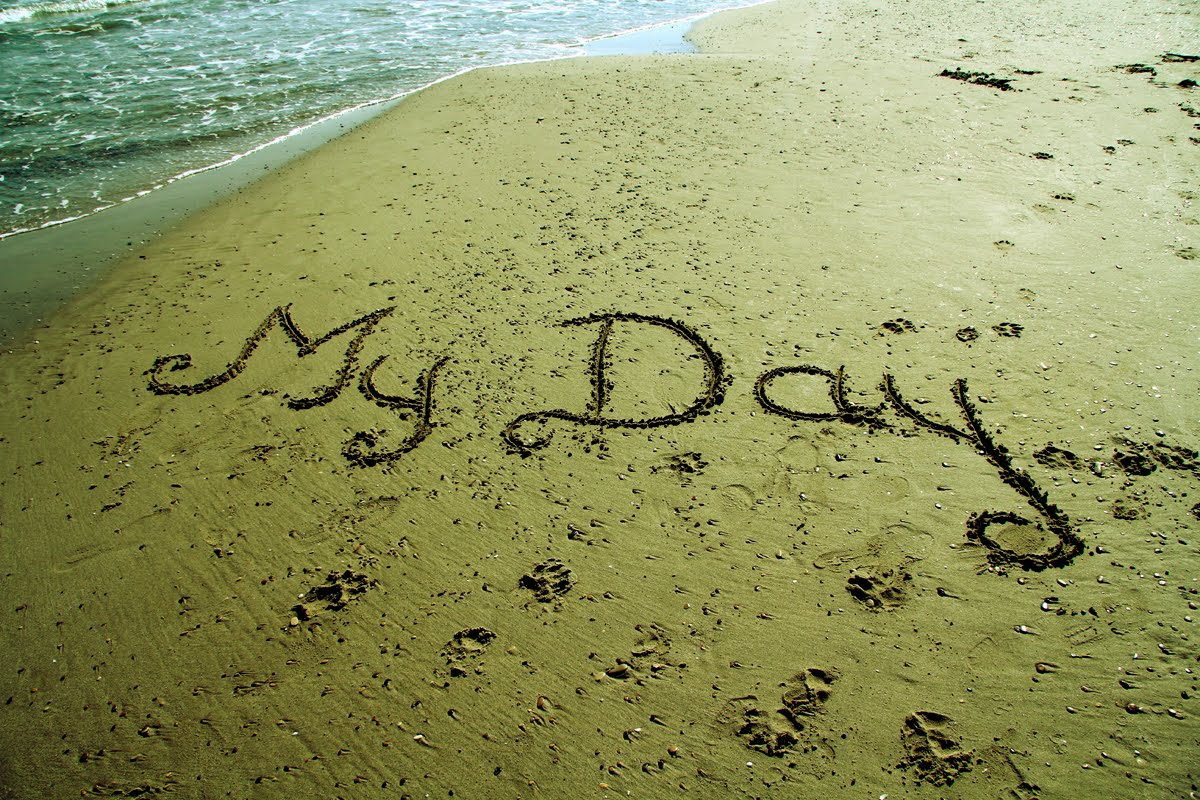 My Day